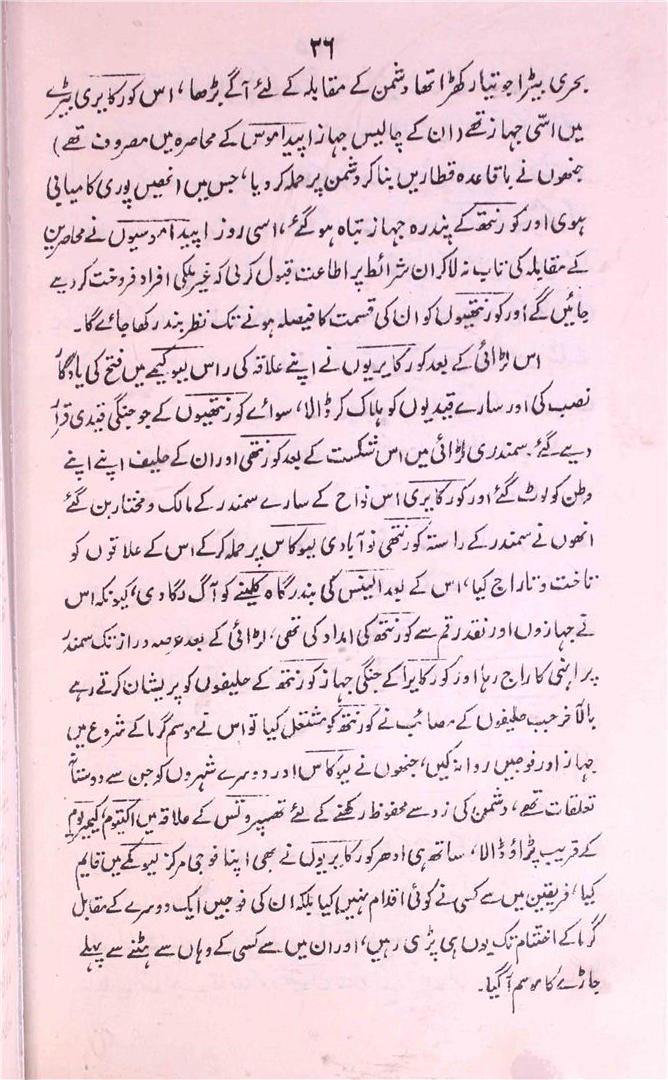 ۳۶
بحری بیڑا جو تیار کھڑا تھا دشمن کے مقابلہ کے لئے آگے بڑھا، اس کورکایری بیڑے
میں اسّی جہاز تھے (ان کے چالیس جہاز اپیداموس کے محاصرہ میں مصروف تھے)
جنھوں نے باقاعدہ قطاریں بنا کر دشمن پر حملہ کر دیا، جس میں انھیں پوری کامیابی
ہوی اور کورنتھ کے پندرہ جہاز تباہ ہو گئے، اسی روز اپیدامدسیوں نے محاصرین
کے مقابلہ کی تاب نہ لا کر ان شرائط پر اطاعت قبول کر لی کہ غیر ملکی افراد فروخت کر دیے
جائیں گے اور کورنتھیوں کو ان کی قسمت کا فیصلہ ہونے تک نظر بند رکھا جائے گا۔
اس لڑائی کے بعد کورکایریوں نے اپنے علاقہ کی راس لیوکیمے میں فتح کی یادگار
نصب کی اور سارے قیدیوں کو ہلاک کر ڈالا، سوائے کورنتھیوں کے جو جنگی قیدی قرار
دیے گئے۔ سمندری لڑائی میں اس شکست کے بعد کورنتھی اور ان کے حلیف اپنے اپنے
وطن کو لوٹ گئے اور کورکایری اس نواح کے سارے سمندر کے مالک و مختار بن گئے
انھوں نے سمندر کے راستہ کورنتھی نوآبادی لیوکاس پر حملہ کر کے اس کے علاقوں کو
تاخت و تاراج کیا، اس کے بعد الینس کی بندرگاہ کلینے کو آگ لگا دی، کیونکہ اس
نے جہازوں اور نقد رقم سے کورنتھ کی امداد کی تھی، لڑائی کے بعد عرصہ دراز تک سمندر
پر انھی کا راج رہا اور کورکایرا کے جنگی جہاز کورنتھ کے حلیفوں کو پریشان کرتے رہے
بالآخر جب حلیفوں کے مصائب نے کورنتھ کو مشتعل کیا تو اس نے موسم گرما کے شروع میں
جہاز اور فوجیں روانہ کیں، جنھوں نے لیوکاس اور دوسرے شہروں کو جن سے دوستانہ
تعلقات تھے، دشمن کی زد سے محفوظ رکھنے کے لئے تھسپروٹس کے علاقہ میں اکتیوم، کیمیریوم
کے قریب پڑاؤ ڈالا، ساتھ ہی ادھر کورکایریوں نے بھی اپنا فوجی مرکز لیوکیمے میں قایم
کیا، فریقین میں سے کسی نے کوئی اقدام نہیں کیا بلکہ ان کی فوجیں ایک دوسرے کے مقابل
گرما کے اختتام تک یوں ہی پڑی رہیں، اور ان میں سے کسی کے وہاں سے ہٹنے سے پہلے
جاڑے کا موسم آ گیا۔